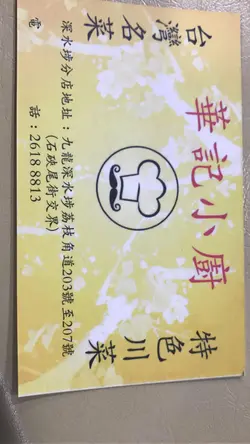 台灣名菜
華記小廚
特色川菜
深水埗分店地址：九龍深水埗荔枝角道203號至207號
(石硤尾街交界)
電話：2618 8813